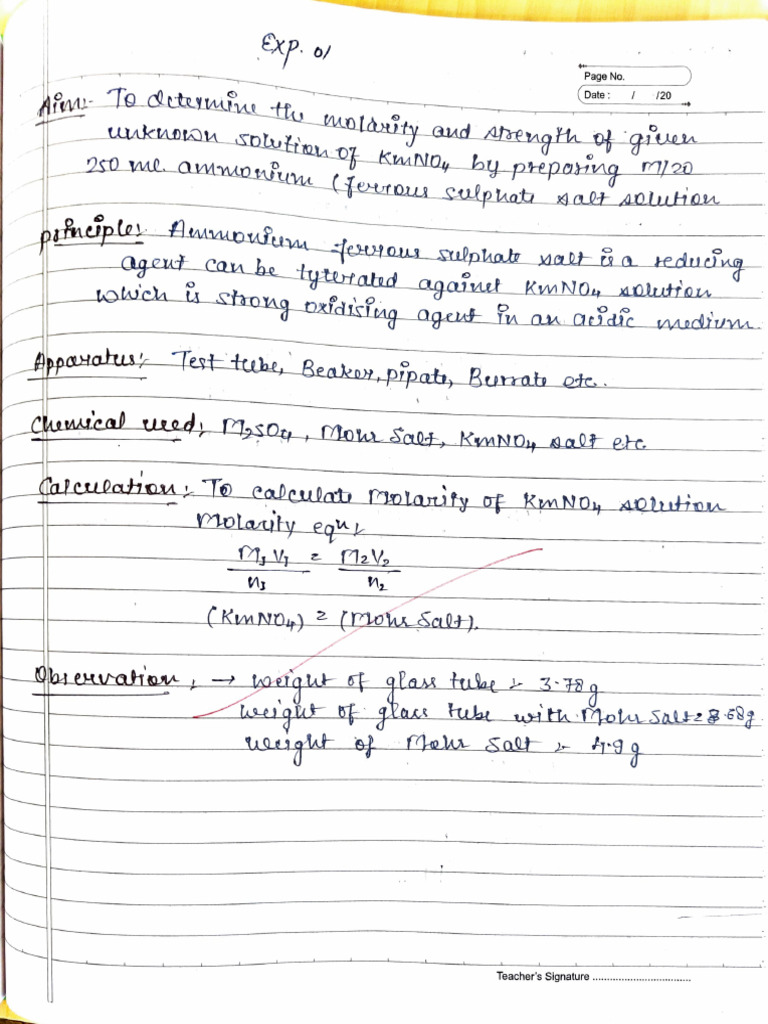 Exp. 01
Page No.
Date : / /20
Aim:- To determine the molarity and strength of given
unknown solution of KmNO4 by preposing M/20
250 ml. ammonium (ferrous sulphate salt solution
principle:- Ammonium ferrous sulphate salt is a reducing
agent can be tyterated against KmNO4 solution
which is strong oxidising agent in an acidic medium.
Apparatus:- Test tube, Beaker, pipate, Burrate etc.
Chemical used:- M2SO4, Mohr Salt, KmNO4 salt etc
Calculation:- To calculate Molarity of KmNO4 solution
Molarity equ:-
M1V1 = M2V2
n1 n2
(KmNO4) = (Mohr Salt).
Observation:- → weight of glass tube :- 3.78 g
weight of glass tube with Mohr Salt = 8.68g
weight of Mohr Salt :- 4.9 g
Teacher's Signature ................................